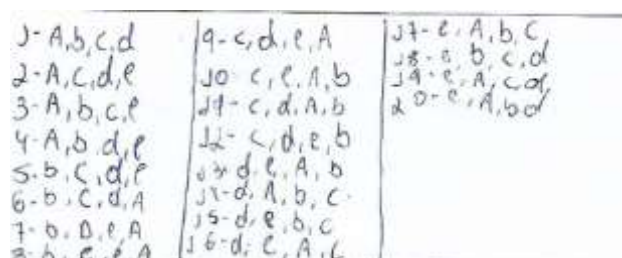 1-A,b,c,d
2-A,c,d,e
3-A,b,c,e
4-A,b,d,e
5-b,c,d,e
6-b,c,d,A
7-b,D,e,A
8-b,c,e,A
9-c,d,e,A
10-c,e,A,b
11-c,d,A,b
12-c,d,e,b
13-d,e,A,b
14-d,A,b,c
15-d,e,b,c
16-d,e,A,
17-e,A,b,c
18-e,b,c,d
19-e,A,c,d
20-e,A,bd